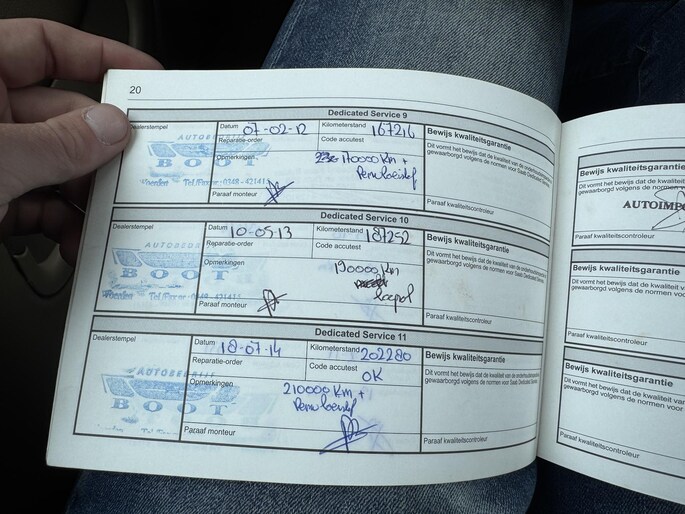 20
Dedicated Service 9
Dealerstempel
Datum 07-02-12
Kilometerstand 167216
Reparatie-order
Code accutest
Opmerkingen 170000 Km +
Remvloeistof
Paraaf monteur
AUTOBEDRIJF
BOOT
Woerden Tel./Fax 0348-421411
Bewijs kwaliteitsgarantie
Dit vormt het bewijs dat de kwaliteit van de onderhoudsbeurt
gewaarborgd volgens de normen voor Saab Dedicated Service.
Paraaf kwaliteitscontroleur
Dedicated Service 10
Dealerstempel
Datum 10-05-13
Kilometerstand 187252
Reparatie-order
Code accutest
Opmerkingen 190000 Km
Paraaf monteur
AUTOBEDRIJF
BOOT
Woerden Tel./Fax 0348-421411
Bewijs kwaliteitsgarantie
Dit vormt het bewijs dat de kwaliteit van de
gewaarborgd volgens de normen voor Saab Dedicated Service.
Paraaf kwaliteitscontroleur
Dedicated Service 11
Dealerstempel
Datum 18-07-14
Kilometerstand 202280
Reparatie-order
Code accutest
OK
Opmerkingen
210000 Km +
Remvloeistof
Paraaf monteur
AUTOBEDRIJF
BOOT
Bewijs kwaliteitsgarantie
Dit vormt het bewijs dat de kwaliteit van de
gewaarborgd volgens de normen voor Saab Dedicated Service.
Paraaf kwaliteitscontroleur
Bewijs kwaliteitsgarantie
Dit vormt het bewijs dat de kwaliteit van de
gewaarborgd volgens de normen
AUTOIMPO
Paraaf kwaliteitscontroleur
Bewijs kwaliteitsgarantie
Dit vormt het bewijs dat de kwaliteit van
gewaarborgd volgens de normen voor
Paraaf kwaliteitscontroleur
Bewijs kwaliteitsgarantie
Dit vormt het bewijs dat de kwaliteit van
gewaarborgd volgens de normen voor
Paraaf kwaliteitscontroleur